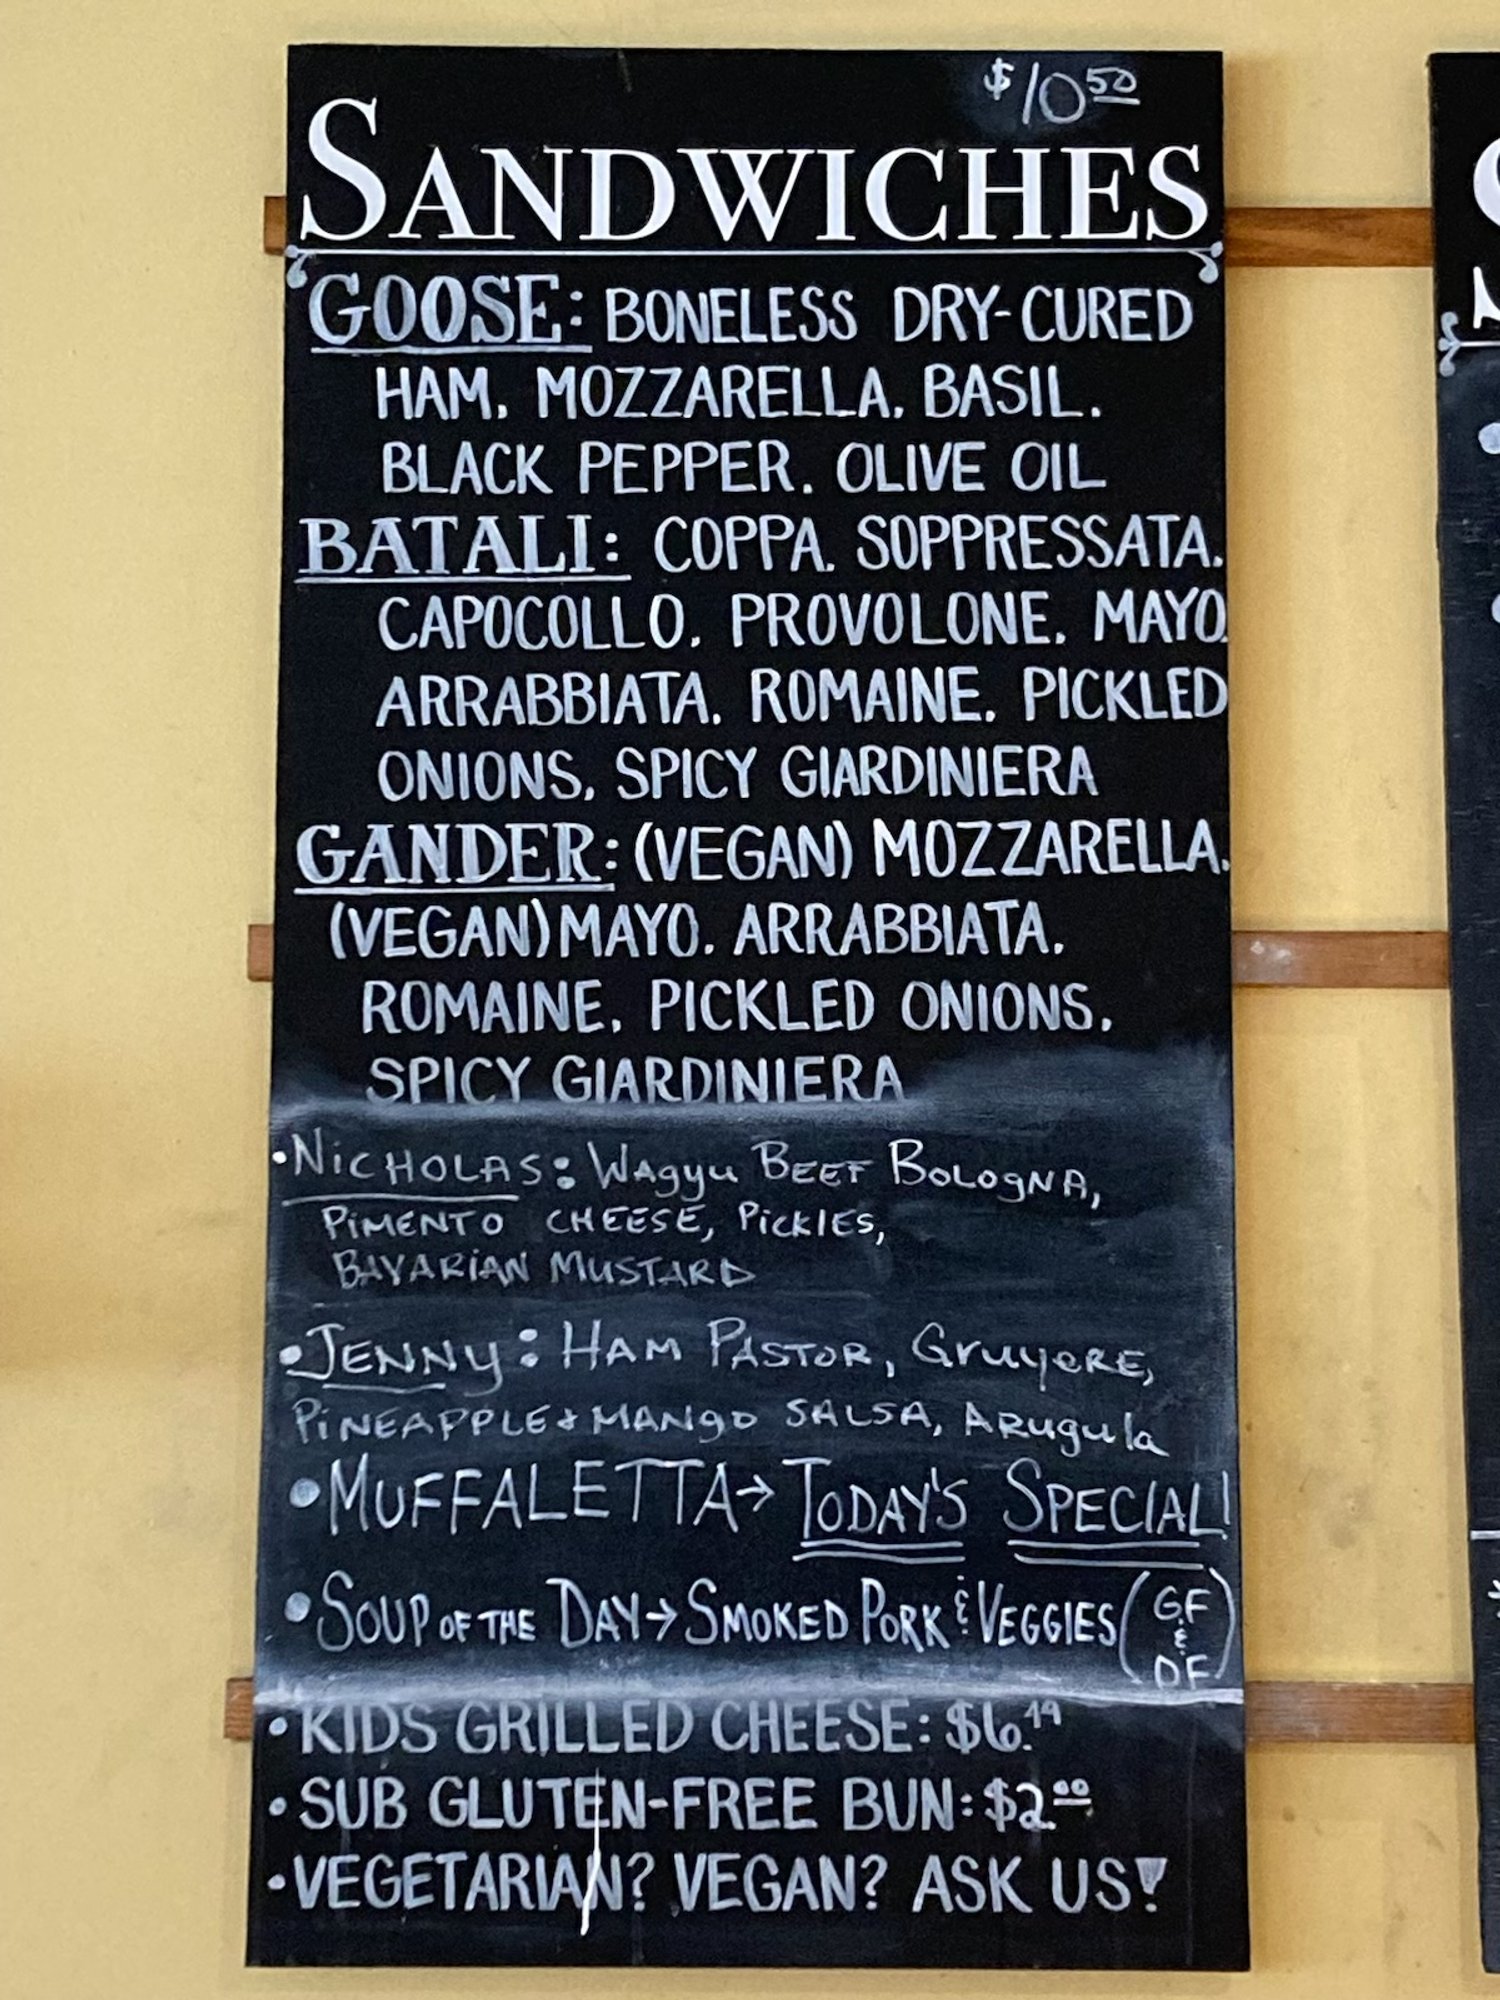 $10.50
SANDWICHES
GOOSE: BONELESS DRY-CURED
HAM, MOZZARELLA, BASIL,
BLACK PEPPER, OLIVE OIL
BATALI: COPPA, SOPPRESSATA,
CAPOCOLLO, PROVOLONE, MAYO,
ARRABBIATA, ROMAINE, PICKLED
ONIONS, SPICY GIARDINIERA
GANDER: (VEGAN) MOZZARELLA,
(VEGAN) MAYO, ARRABBIATA,
ROMAINE, PICKLED ONIONS,
SPICY GIARDINIERA
• NICHOLAS: WAgyu BEEF BOLOgNA,
PIMENTO CHEESE, PICKLES,
BAVARIAN MUSTARD
• JENNy: HAM PASTOR, GruyeRE,
PINEAPPLE & MANgO SALSA, ARugula
• MUFFALETTA → TODAY'S SPECIAL!
• SOUP OF THE DAY → SMOKED PORK & VEGGIES (GF & DF)
• KIDS GRILLED CHEESE: $6.49
• SUB GLUTEN-FREE BUN: $2.00
• VEGETARIAN? VEGAN? ASK US!